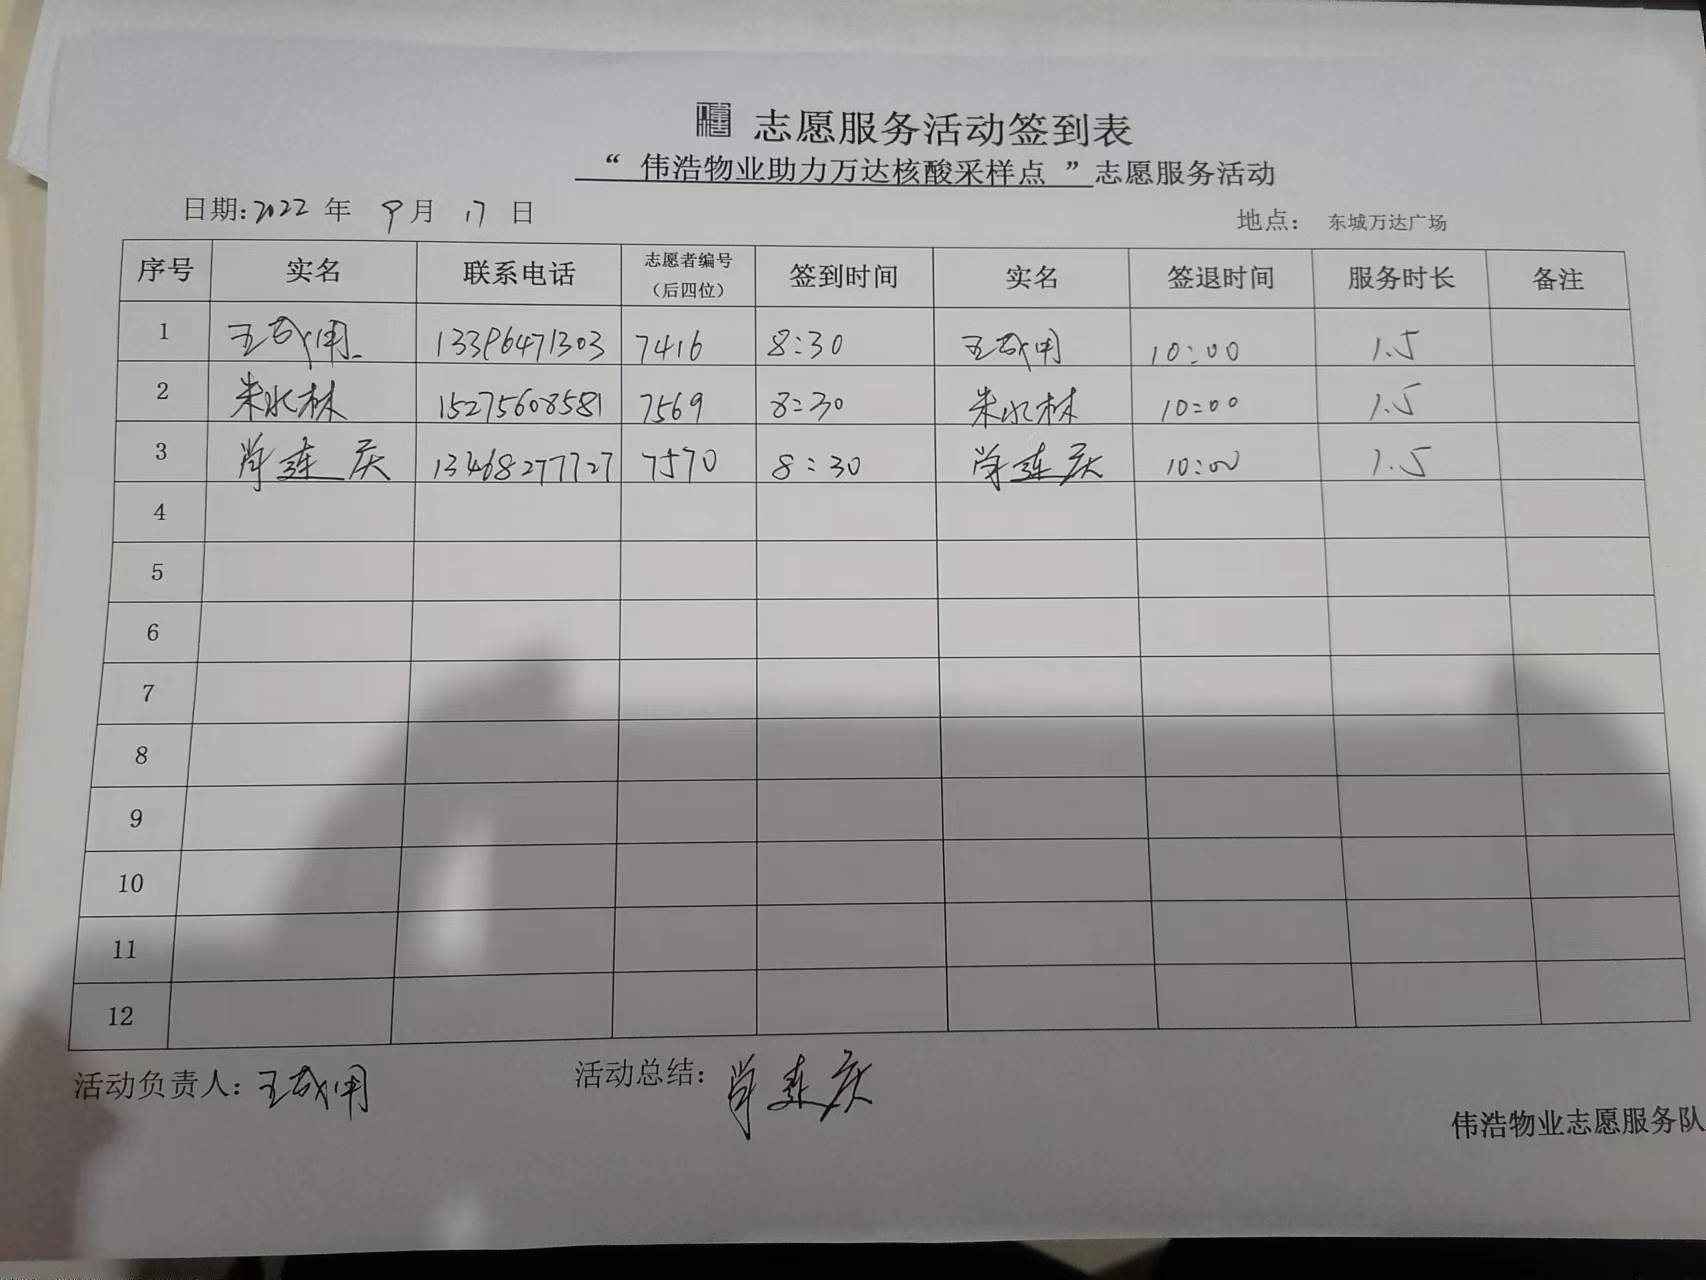 志愿服务活动签到表
“ 伟浩物业助力万达核酸采样点 ”志愿服务活动
日期:2022 年 9月 17 日 地点： 东城万达广场
序号 实名 联系电话 志愿者编号（后四位） 签到时间 实名 签退时间 服务时长 备注
1 王成用 13396471303 7416 8:30 王成用 10:00 1.5
2 朱水林 15275608581 7569 8:30 朱水林 10:00 1.5
3 肖连庆 13468277727 7570 8:30 肖连庆 10:00 1.5
4
5
6
7
8
9
10
11
12
活动负责人: 王成用 活动总结: 肖连庆
伟浩物业志愿服务队